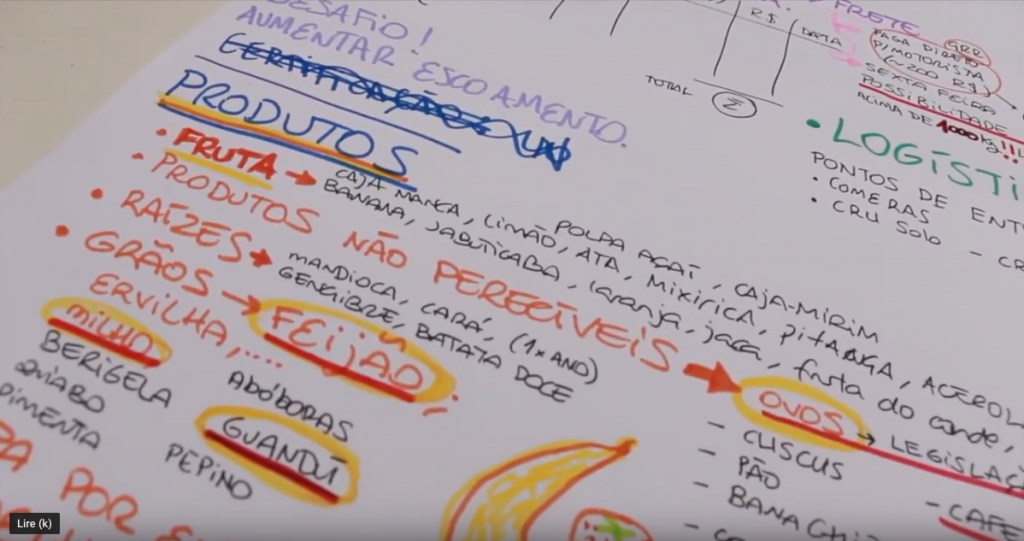 DESAFIO!
AUMENTAR ESCOAMENTO.
PRODUTOS
• FRUTA → CAJÁ MANGA, LIMÃO, POLPA AÇAÍ, CAJÁ-MIRIM
BANANA, JABUTICABA, ATA, MIXIRICA, PITANGA, ACEROLA
laranja, jaca, fruta do conde,
• PRODUTOS NÃO PERECÍVEIS → OVOS → LEGISLAÇÃ
- CUSCUS
- PÃO
- CAFE
• RAÍZES → MANDIOCA, CARÁ, (1x ANO)
GENGIBRE, BATATA DOCE
• GRÃOS → FEIJÃO;
ERVILHA,....
MILHO
BERIGELA
QUIABO
PIMENTA
ABÓBORAS
GUANDÚ
PEPINO
PA POR
R$
DATA
TOTAL
Σ
FRETE
PAGA DIRETO
P/MOTORISTA
SEXTA FEIRA
POSSIBILIDADE
ACIMA DE 1000Kg!!!
• LOGÍSTI
PONTOS DE ENT
• COMERAS
• CRU SOLO
Lire (k)